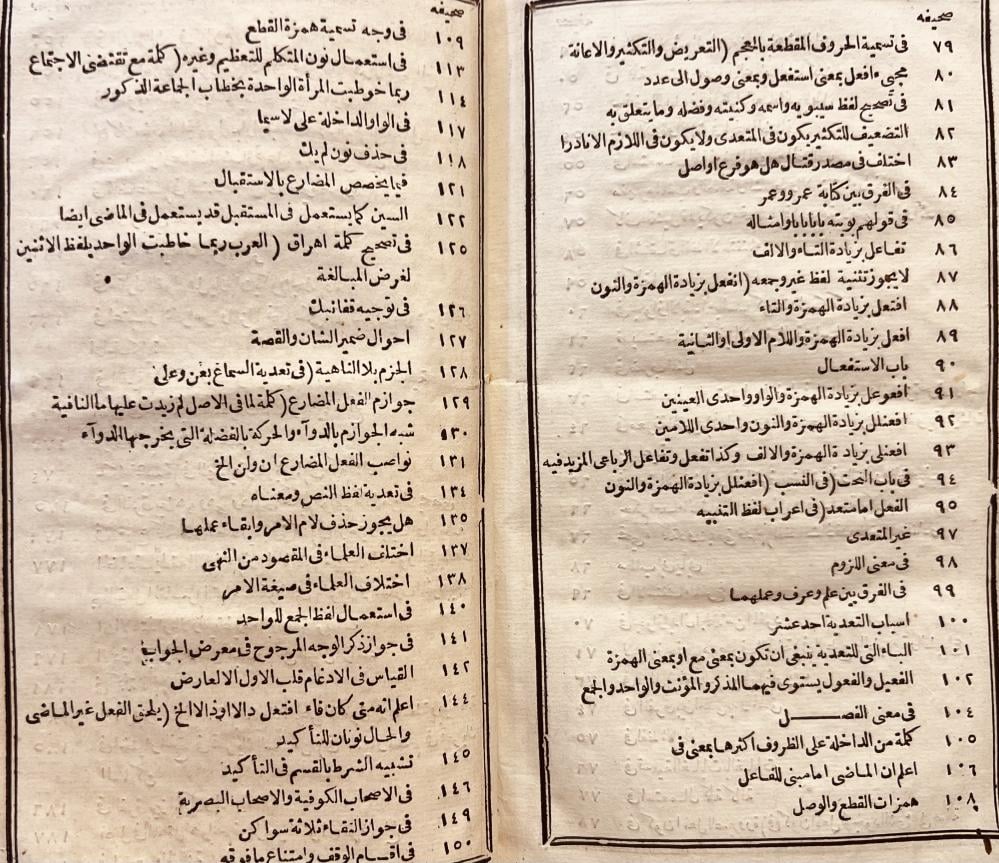 صحيفه
٧٩ فى تسمية الحروف المقطعة بالمعجم (التعريض والتكثير والاعانة
٨٠ مجىء افعل بمعنى استفعل وبمعنى وصول الى عدد
٨١ فى تصحيح لفظ سيبويه واسمه وكنيته وفضله وما يتعلق به
٨٢ التضعيف للتكثير يكون فى المتعدى ولا يكون فى اللازم الا نادرا
٨٣ اختلف فى مصدر قتال هل هو فرع او اصل
٨٤ فى الفرق بين كتابة عمرو وعمر
٨٥ فى قولهم بوبته بابا بابا وامثاله
٨٦ تفاعل بزيادة التاء والالف
٨٧ لا يجوز تثنية لفظ غير وجمعه (انفعل بزيادة الهمزة والنون
٨٨ افتعل بزيادة الهمزة والتاء
٨٩ افعل بزيادة الهمزة واللام الاولى او الثانية
٩٠ باب الاستفعال
٩١ افعوعل بزيادة الهمزة والواو واحدى العينين
٩٢ افعنلل بزيادة الهمزة والنون واحدى اللامين
٩٣ افعنلى بزيادة الهمزة والالف وكذا تفعل وتفاعل الرباعى المزيد فيه
٩٤ فى باب النحت (فى النسب (افعنلل بزيادة الهمزة والنون
٩٥ الفعل اما متعد (فى اعراب لفظ التنبيه
٩٧ غير المتعدى
٩٨ فى معنى اللزوم
٩٩ فى الفرق بين علم وعرف وعملهما
١٠٠ اسباب التعدية احد عشر
١٠١ الباء التى للتعدية ينبغى ان تكون بمعنى مع او بمعنى الهمزة
١٠٢ الفعيل والفعول يستوى فيهما المذكر والمؤنث والواحد والجمع
١٠٤ فى معنى الفصل
١٠٥ كلمة من الداخلة على الظروف اكثرها بمعنى فى
١٠٦ اعلم ان الماضى اما مبنى للفاعل
١٠٨ همزات القطع والوصل
صحيفه
١٠٩ فى وجه تسمية همزة القطع
١١٣ فى استعمال نون المتكلم للتعظيم وغيره (كلمة مع تقتضى الاجتماع
١١٤ ربما خوطبت المرأة الواحدة بخطاب الجماعة الذكور
١١٧ فى الواو الداخلة على لاسيما
١١٨ فى حذف نون لم يك
١٢١ فيما يخصص المضارع بالاستقبال
١٢٢ السين كما يستعمل فى المستقبل قد يستعمل فى الماضى ايضا
١٢٥ فى تصحيح كلمة اهراق (العرب ربما خاطبت الواحد بلفظ الاثنين
لغرض المبالغة
١٢٦ فى توجيه قفا نبك
١٢٧ احوال ضمير الشان والقصة
١٢٨ الجزم بلا الناهية (فى تعدية السماع بعن وعلى
١٢٩ جوازم الفعل المضارع (كلمة لما فى الاصل لم زيدت عليها ما النافية
١٣٠ شبه الجوازم بالدوآء والحركة بالفضلة التى يخرجها الدوآء
١٣١ نواصب الفعل المضارع ان ولن الخ
١٣٤ فى تعدية لفظ النص ومعناه
١٣٥ هل يجوز حذف لام الامر وابقاء عملها
١٣٧ اختلف العلماء فى المقصود من النهى
١٣٨ اختلاف العلماء فى صيغة الامر
١٤٠ فى استعمال لفظ الجمع للواحد
١٤١ فى جواز ذكر الوجه المرجوح فى معرض الجواب
١٤٢ القياس فى الادغام قلب الاول الا لعارض
١٤٤ اعلم انه متى كان فاء افتعل دالا او ذالا الخ (يلحق الفعل غير الماضى
والحال نونان للتأكيد
١٤٥ تشبيه الشرط بالقسم فى التأكيد
١٤٦ فى الاصحاب الكوفية والاصحاب البصرية
١٤٩ فى جواز التقاء ثلاثة سواكن
١٥٠ فى اقسام الوقف وامتناع ما فوقه